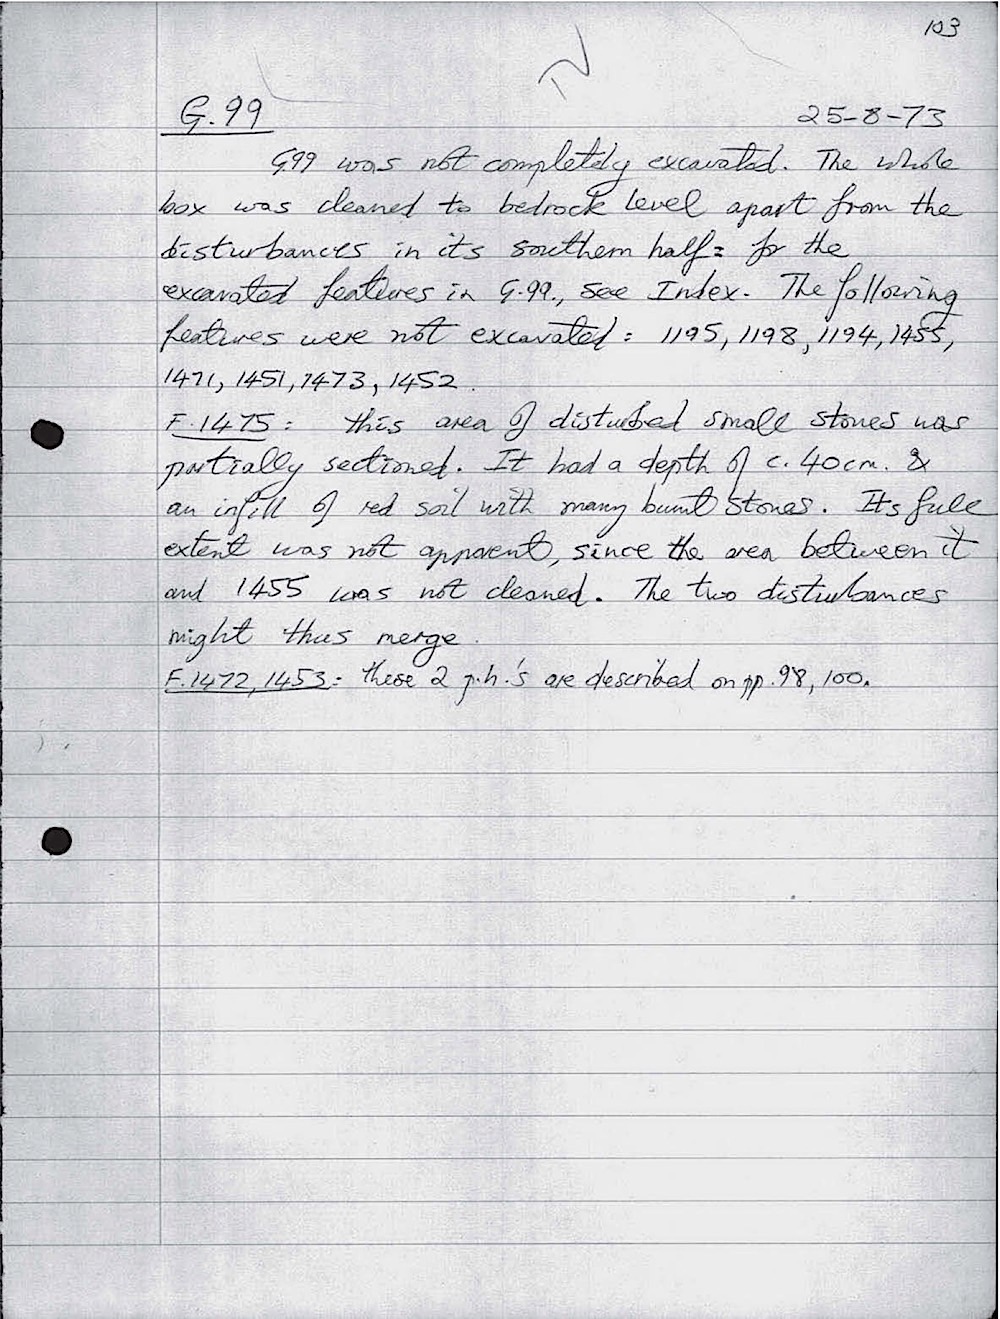 103
G.99 25-8-73
G99 was not completely excavated. The whole
box was cleaned to bedrock level apart from the
disturbances in its southern half: for the
excavated features in G.99., see Index. The following
features were not excavated: 1195, 1198, 1194, 1455,
1471, 1451, 1473, 1452.
F.1475: this area of disturbed small stones was
partially sectioned. It had a depth of c. 40cm. &
an infill of red soil with many burnt stones. Its full
extent was not apparent, since the area between it
and 1455 was not cleaned. The two disturbances
might thus merge.
F.1472, 1453: these 2 p.h.'s are described on pp. 98, 100.